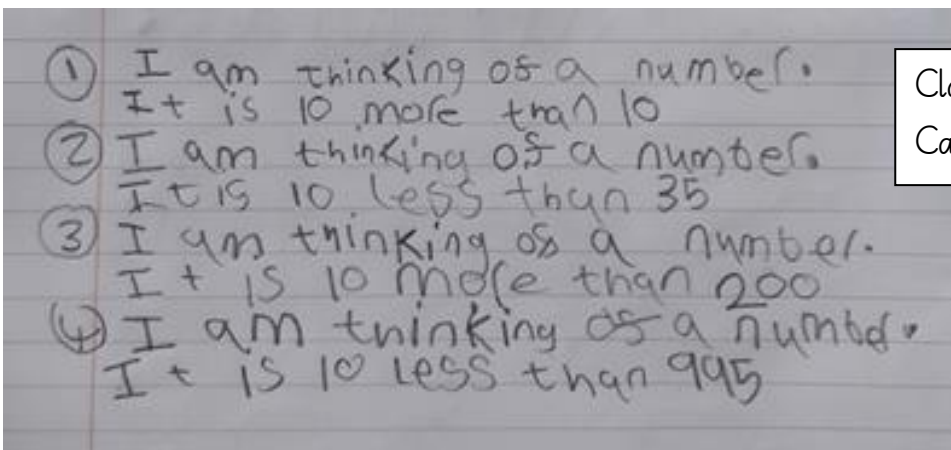 ① I am thinking of a number.
It is 10 more than 10
② I am thinking of a number.
It is 10 less than 35
③ I am thinking of a number.
It is 10 more than 200
④ I am thinking of a number.
It is 10 less than 995
Cl
Ca